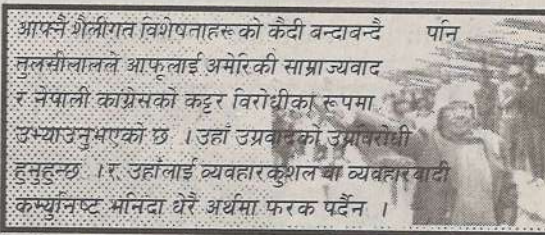 आफ्नै शैलीगत विशेषताहरूको कैदी बन्दाबन्दै पनि
तुलसीलालले आफूलाई अमेरिकी साम्राज्यवाद
र नेपाली कांग्रेसको कट्टर विरोधीका रूपमा
उभ्याउनुभएको छ । उहाँ उग्रवादको उग्रविरोधी
हुनुहुन्छ । र उहाँलाई व्यवहारकुशल वा व्यवहारवादी
कम्युनिष्ट भनिदा धेरै अर्थमा फरक पर्दैन ।